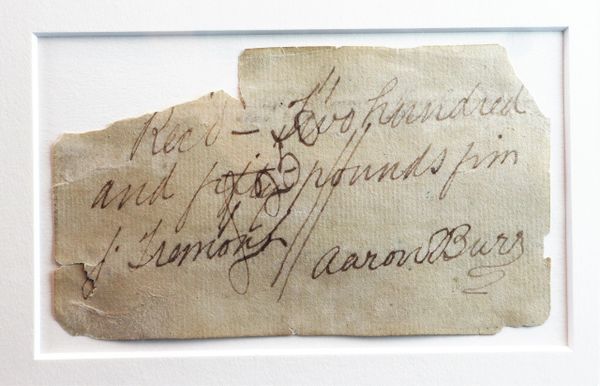 Rec'd — Two hundred
and fifty pounds fim
J. Tremont
Aaron Burr